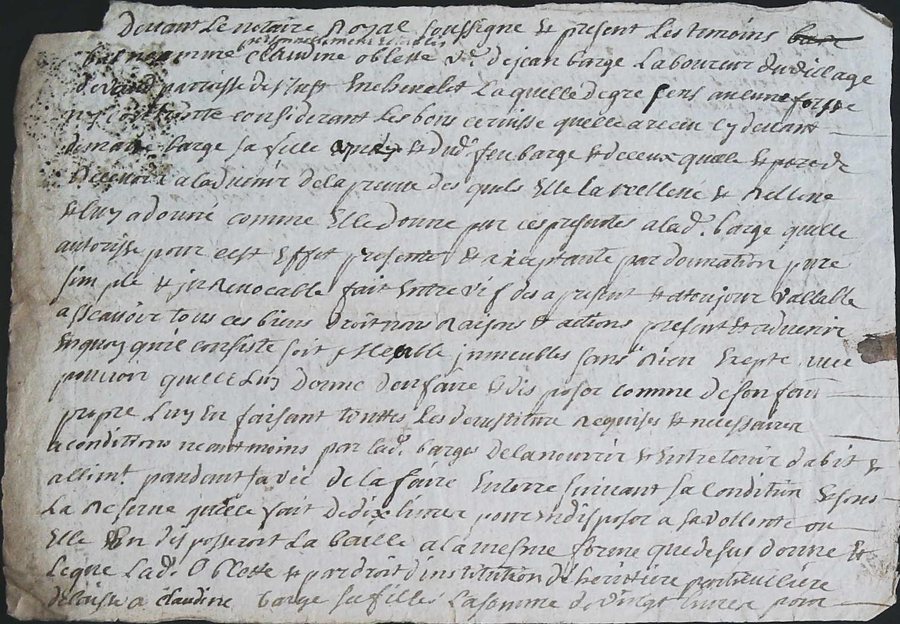 Devant Le notaire Royal soussigne & present Les timoins
bas nommé personnellement establie claudine oblette v.e de jean barge Laboureur du village
parroisse de s.t just en chevalet Laquelle de gre sens aucune forsse
ny contrinte considerant les bons cervisse quelle a receu cy devant
de marie barge sa fille & dud.t feu barge & de ceux quele espere de
recevoir a ladvenir de la preuve des quels Elle la rellene & Rellene
& luy a donné comme Elle donne par ces presentes a lad. barge quelle
autorise pour cest Effet presente & acceptante par donnation pure
simple & jnRevocable fait Entre vifs des a present & atoujour vallable
asscavoir tous ces biens droit nons Raisons & actions present & advenir
Enquoy quil consiste soit Meuble jmmeubles sans Rien Exepte avec
pouvoir quelle Luy donne den faire & dis poser comme de son fait
propre Luy En faisant touttes Les devestiture Requises & necessaires
a conditions neantmoins par lad. barge de la nourrir & Entretenir dabit &
allimt. pandant sa vie de la faire Enterre suivant sa Condition & sous
La Reserve quelle fait de dix livres pour En disposer a sa vollonte ou
Elle nEn disposseroit La baille a la mesme forme que desus donne &
Legue Lad. Oblette & par droit d'institution d'heritiere particuliere
delaisse a claudine barge sa fille La somme de vingt livres pour